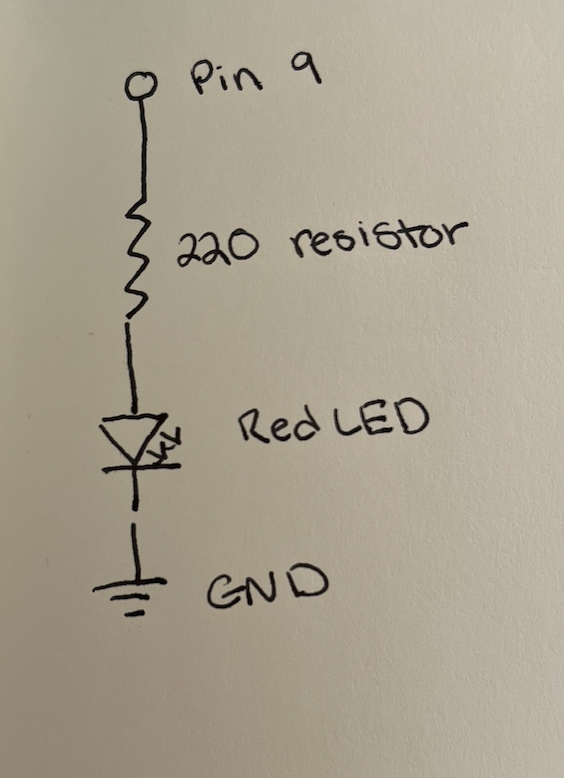 Pin 9
220 resistor
Red LED
GND